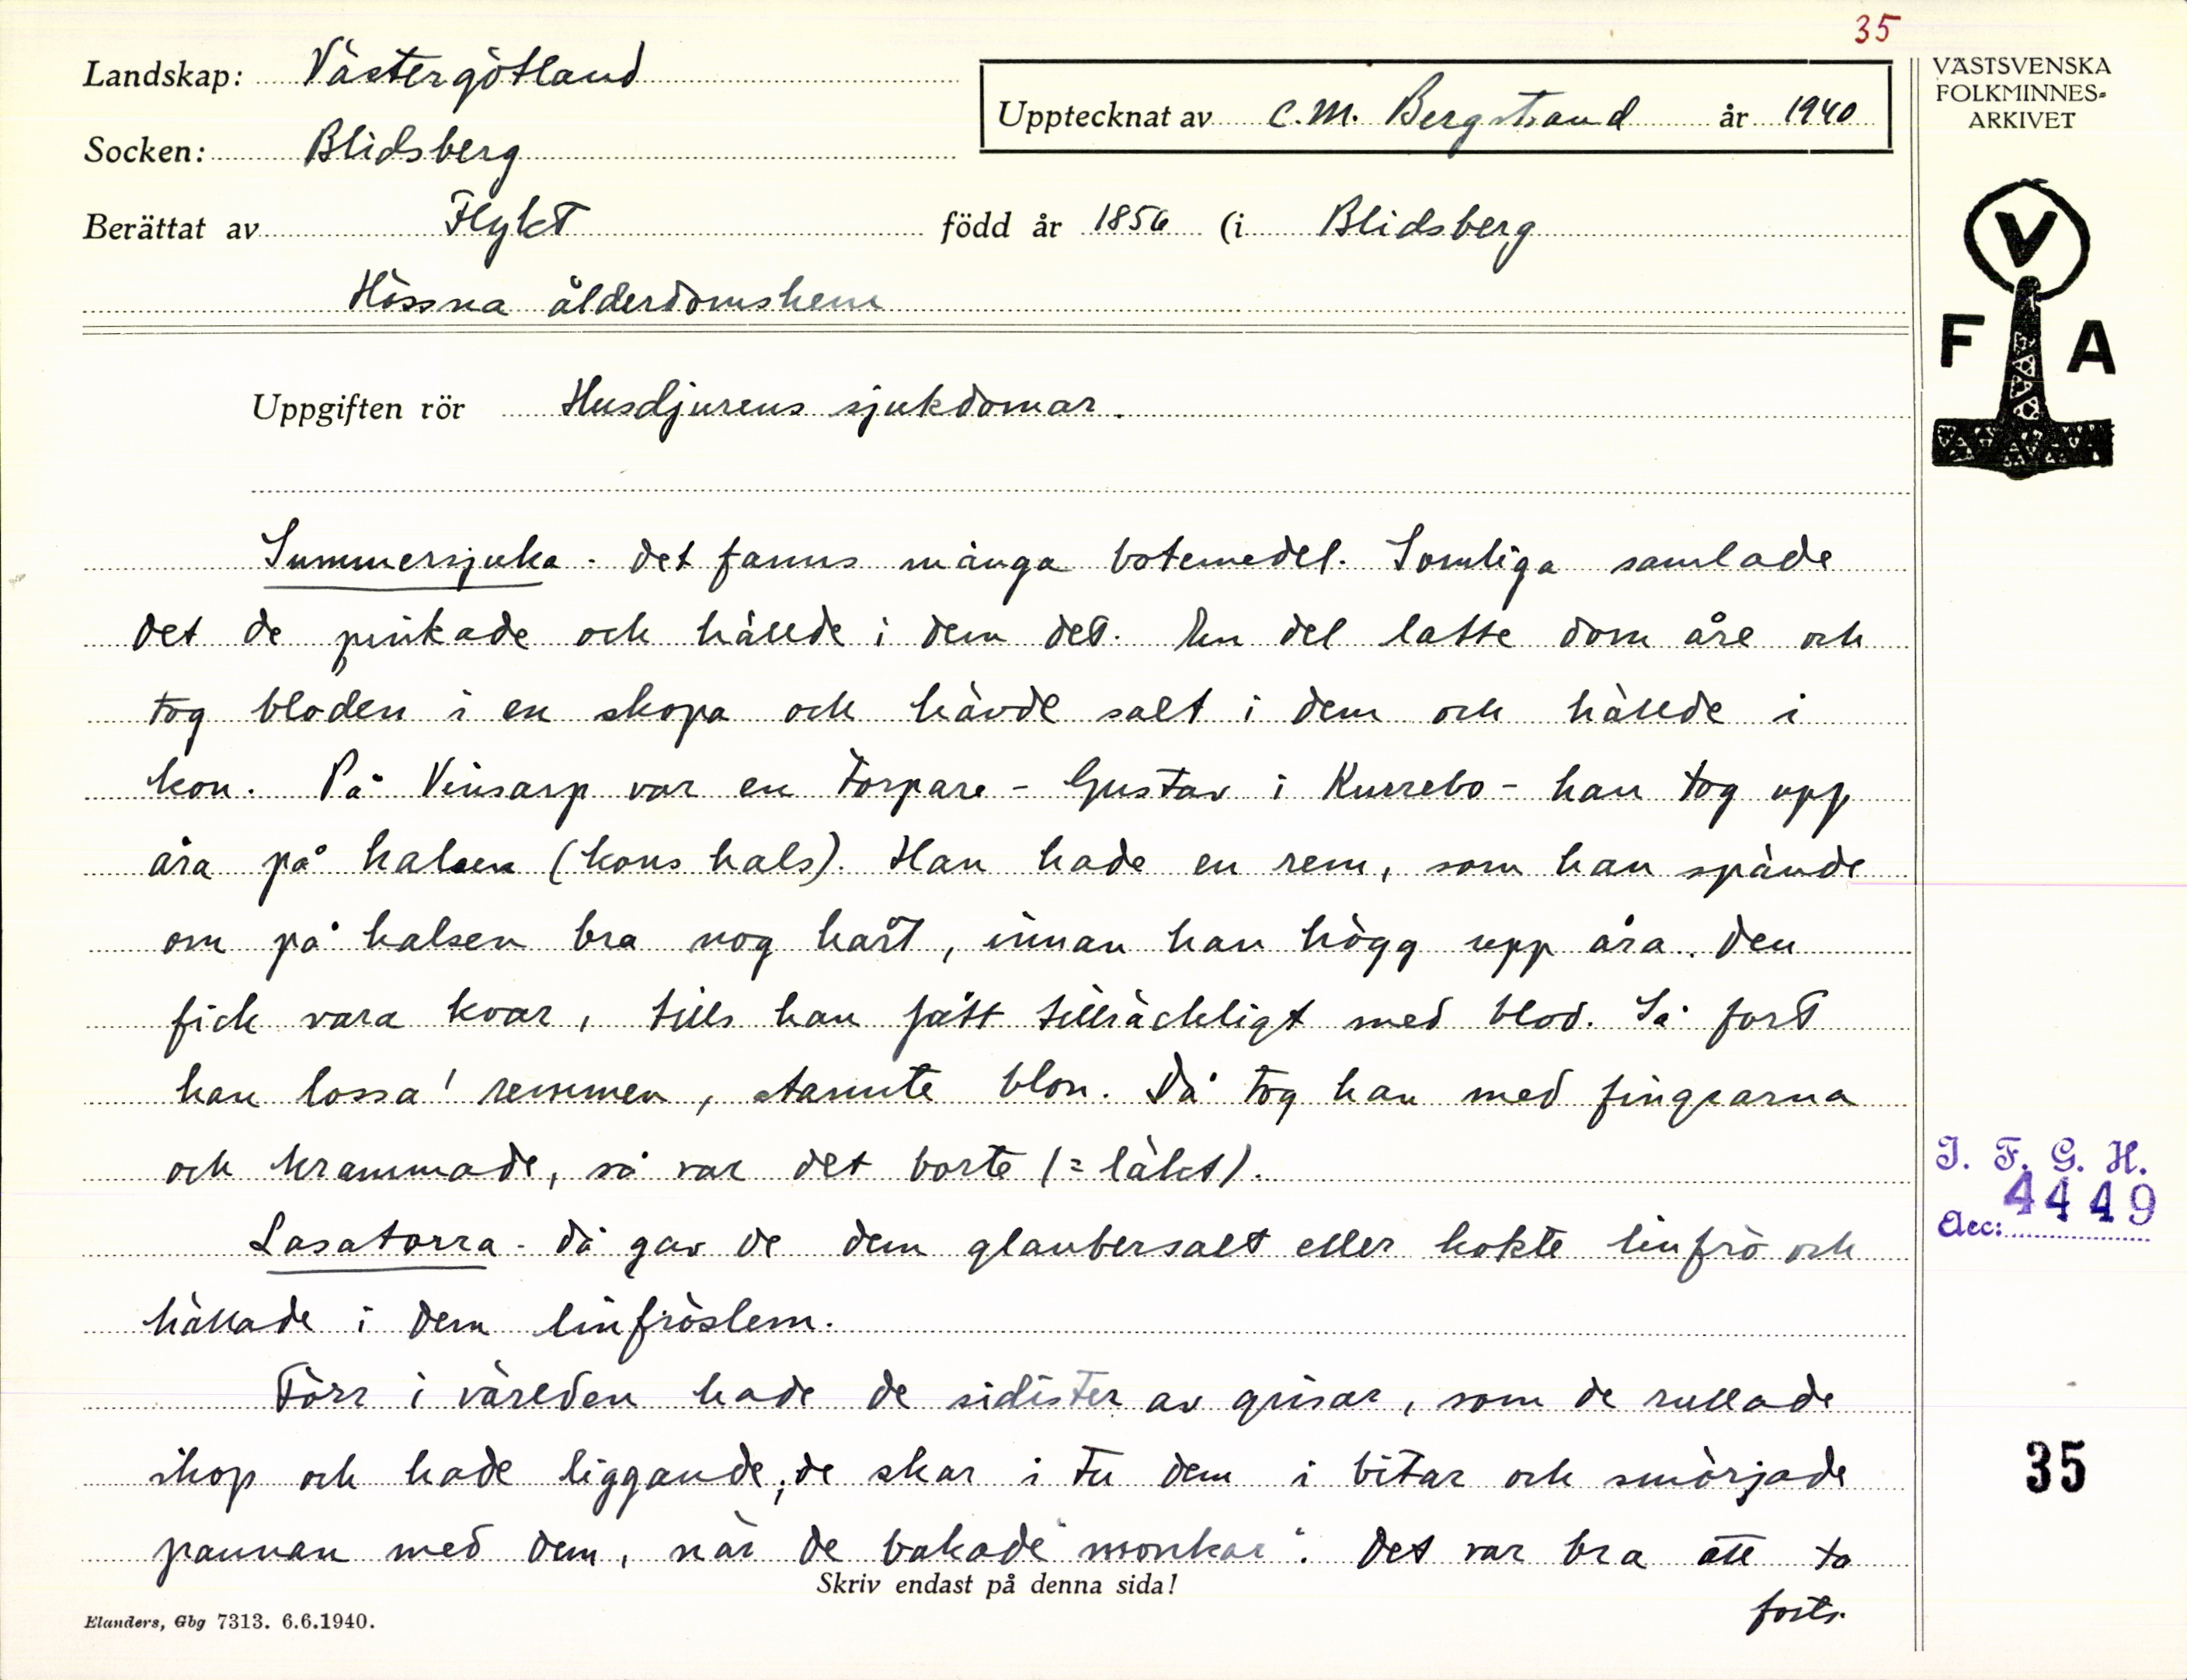 35
Landskap: Västergötland
Upptecknat av C.M. Bergstrand år 1940
Socken: Blidsberg
Berättat av Flykt född år 1856 (i Blidsberg
Hössna ålderdomshem
Uppgiften rör Husdjurens sjukdomar.
Summersjuka - det fanns många botemedel. Somliga samlade
det de pinkade och hällde i dem det. En del latte dom åre och
tog bloden i en skopa och hävde salt i dem och hällde i
kon. På Vinsarp var en torpare - Gustav i Kurrebo - han tog upp
åra på halsen (kons hals). Han hade en rem, som han spände
om på halsen bra nog hårt, innan han högg upp åra. Den
fick vara kvar, tills han fått tillräckligt med blod. Så fort
han lossa' remmen, stannte blon. Då tog han med fingrarna
och krammade, så var det borte (= läkt).
Lasatorra - då gav de dem glaubersalt eller kokte linfrö och
hällade i dem linfröslem.
Förr i världen hade de sidister av grisar, som de rullade
ihop och hade liggande; de skar i tu dem i bitar och smörjade
pannan med dem, när de bakade "monkar". Det var bra att ta
forts.
Skriv endast på denna sida!
Elanders, Gbg 7313. 6.6.1940.
VÄSTSVENSKA
FOLKMINNES-
ARKIVET
V
F A
I. F. G. H.
Acc: 4449
35